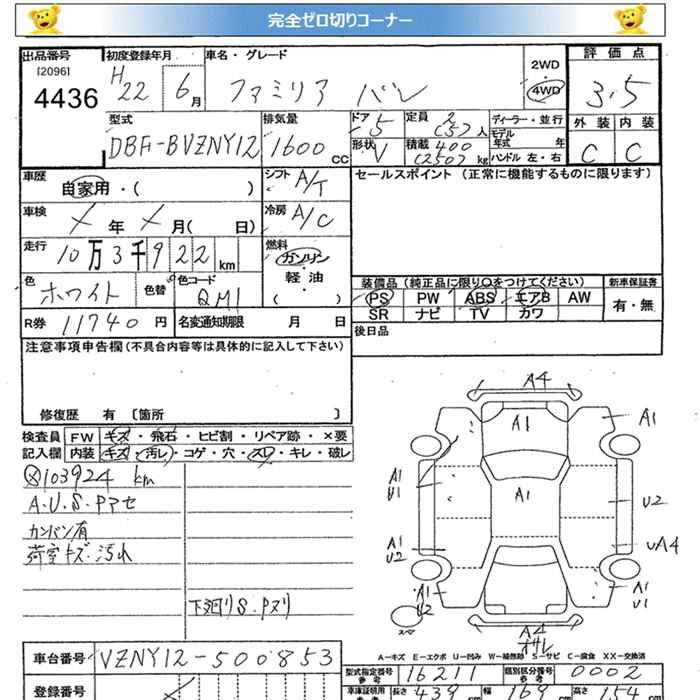 完全ゼロ切りコーナー
出品番号 初度登録年月 車名・グレード 2WD 評価点
[2096] H22 6月 ファミリア バン 4WD 3.5
4436
型式 排気量 ドア 定員 ディーラー・並行 外装 内装
DBF-BVZNY12 1600 CC 5 2(5)人 モデル年式 年 C C
形状 V 積載 400(250)kg ハンドル 左・右
車歴 シフト セールスポイント (正常に機能するものに限ります)
自家用・( ) A/T
車検 冷房
× 年 × 月( 日) A/C
走行 燃料
10万3千922km ガソリン
色 色替 色コード 軽油
ホワイト QM1 ( )
装備品 (純正品に限り○をつけてください) 新車保証書
PS PW ABS エアB AW 有・無
SR ナビ TV カワ
R券 11740 円 名変通知期限 月 日 後日品
注意事項申告欄 (不具合内容等は具体的に記入して下さい)
修復歴 有 〔箇所 〕
検査員 FW キズ・飛石・ヒビ割・リペア跡・×要
記入欄 内装 キズ・汚レ・コゲ・穴・スレ・キレ・破レ
ⓧ103924 km
A.U.S.Pアセ
カンバン有
荷室キズ.汚れ
下廻りS.Pヌリ
A4
A1 A1
A1 U1 A1 U2
A1 U2 UA4
A1 U2 A1 U1
スペア A4
オサレ
A-キズ E-エクボ U-凹み W-補修跡 S-サビ C-腐食 XX-交換済
車台番号 VZNY12-500853
型式指定番号 参考 16211 類別区分番号 参考 0002
登録番号 車庫証明用 参考 長さ 439 cm 幅 169 cm 高さ 154 cm